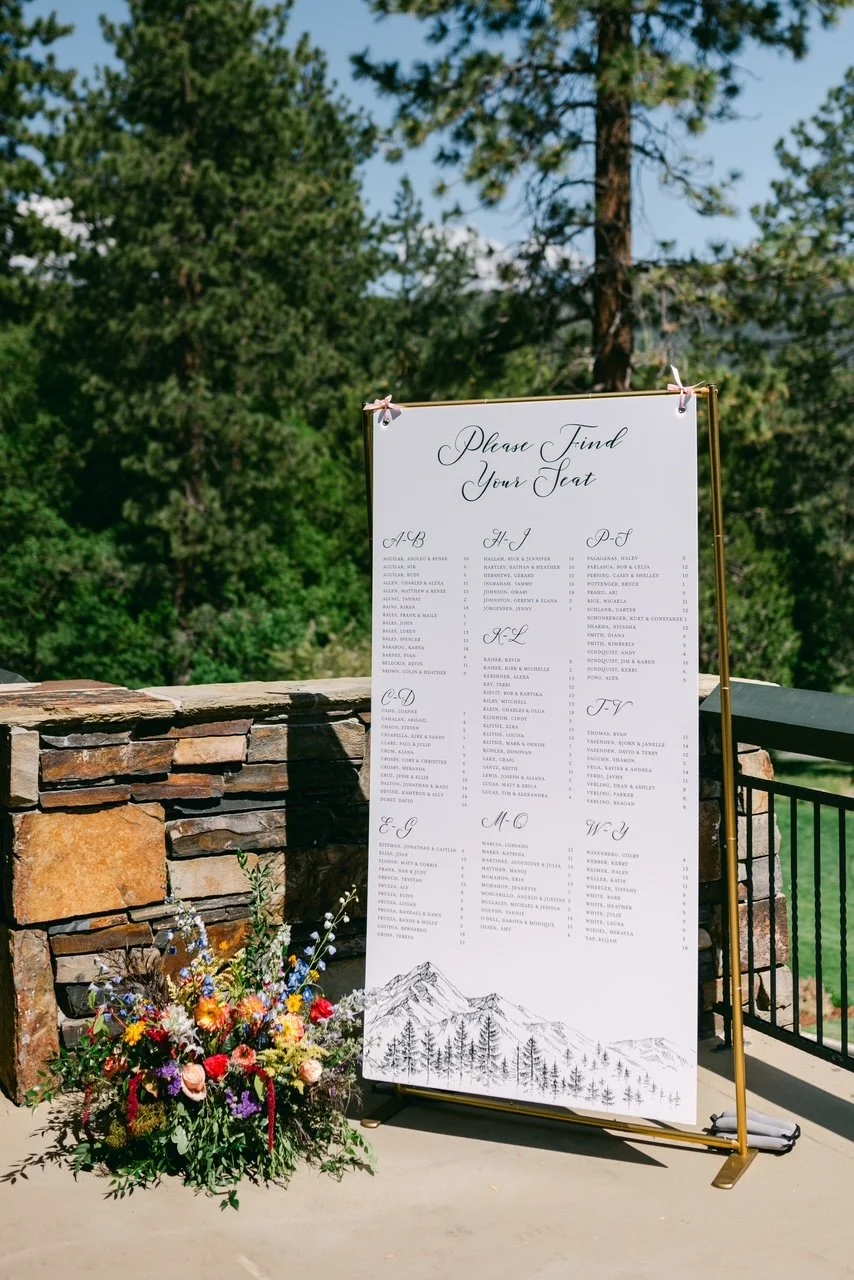 Please Find
Your Seat
A-B
AGUILAR, ADOLFO & RENEE 16
AGUILAR, NIK 6
AGUILAR, RUDY 6
ALLEN, CHARLES & ALEXA 11
ALLEN, MATTHEW & RENEE 15
BAINS, KIRAN 18
BALES, FRANK & MAILE 1
BALES, JOHN
BALES, LOREN
BALES, SPENCER
BARABOO, KARNA
BARNES, RYAN
BELEUKIS, DEVIN
BROWN, COLIN & HEATHER 9
C-D
CADY, LUANNE
GAMALAY, ABIGAIL
CHACO, STEVEN
CHIAPELLA, KIRK & SANDY
CLARE, PAUL & JULIE
CROM, KIANA
CROSBY, CORY & CHRISTINE
CROSBY, MERANDA
CRUZ, JESSE & ELLIE
DALTON, JONATHAN & MADI
DEVINE, KAMERON & ALLY
DORST, DAVID
E-G
EITZMAN, JONATHAN & CAITLIN
ELIAS, JOAN
FRANK, DAN & JUDY
FRENCH, TRYSTAN
FRUZZA, ALY
FRUZZA, ECHO
FRUZZA, LOGAN
FRUZZA, RANDALL & DAWN
FRUZZA, RANDY & HOLLY
GAVIDIA, BERNARDO
GROSS, TERESA
H-J
HALLAM, RICK & JENNIFER 16
HARTLEY, NATHAN & HEATHER 10
HERSHEWE, GERARD 12
INGRAHAM, TAMMY 10
JOHNSON, OMARI 18
JOHNSTON, GEREMY & ELANA 3
JORGENSEN, JENNY 7
K-L
KAISER, KEVIN
KAISER, KIRK & MICHELLE
KERSHENEK, ALEXA
KEY, TERRI
KIEVIT, ROB & KARTIKA
KILBY, MITCHELL
KLEIN, CHARLES & OLGA
KLISHOM, CINDY
KLITSIE, KIRA
KLITSIE, LOUISA
KLITSIE, MARK & DENISE
KOHLES, DONOVAN
LAKE, CRAIG
LANTZ, KEITH
LEWIS, JOSEPH & ALIANA
LUCAS, MATT & ERICA
LUCAS, TIM & ALEXANDRA
M-O
MARCIA, LORIANO
MARKS, KATRINA
MARTINEZ, AUGUSTINE & JULIA
MATTHEW, MANOJ
MCMAHON, ERIN
MCMAHON, JEANETTE
MOSCARILLO, ANGELO & JUSTINE
MULLALEY, MICHAEL & JESSICA
NGUYEN, VANNIE
OLSEN, AMY
P-S
PALAGANAS, HALEY 5
PARLASCA, ROB & CELIA 12
PERSING, CASEY & SHELLEY 10
POTTENGER, BRUCE 1
PRAHU, ARI 5
RICE, MICAELA 11
SCHLANK, CARTER 12
SCHONBERGER, KURT & CONSTANZE 1
SHARMA, NITASHA 12
SMITH, DIANA
SMITH, KIMBERLY
SUNDQUIST, ANDY
SUNDQUIST, JIM & KAREN 16
SUNDQUIST, KERRI
SUNG, ALEX
T-V
THOMAS, RYAN 11
VASENDEN, BJORN & JANELLE 14
VASENDEN, DAVID & TERRY
VAUGHN, SHARON
VEGA, XAVIER & ANDREA
VERDI, JAYME
VERLING, DEAN & ASHLEY
VERLING, PARKER
VERLING, REAGAN
W-Y
WAVENBERG, COLBY
WEBBER, KERRY
WEIMER, HALEY
WELLER, KATIE
WHEELER, TIFFANY
WHITE, BARB
WHITE, HEATHER
WHITE, JULIE
WHITE, LAURA
WIEDEL, MIKAYLA
YAP, ELIJAH